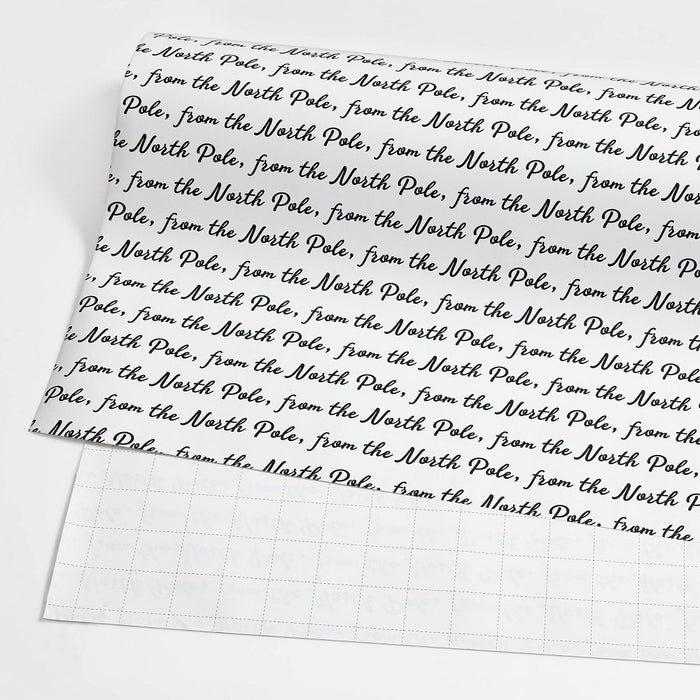 Pole, from the North Pole, from the North Pole, from the
North Pole, from the North Pole, from the North Pole, from the
from the North Pole, from the North Pole, from the North
Pole, from the North Pole, from the North Pole, from the
North Pole, from the North Pole, from the North Pole, from
from the North Pole, from the North Pole, from the North
Pole, from the North Pole, from the North Pole, from the North
North Pole, from the North Pole, from the North Pole, from
from the North Pole, from the North Pole, from the North
Pole, from the North Pole, from the North Pole, from the North
North Pole, from the North Pole, from the North Pole, from
from the North Pole, from the North Pole, from the North Pole,
Pole, from the North Pole, from the North Pole, from the North
North Pole, from the North Pole, from the North Pole, from the